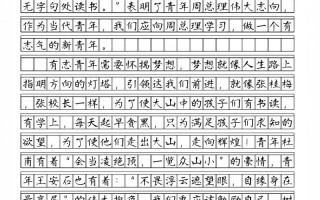 无字句处读书。”表明了青年周总理伟大志向，
作为当代青年，我们应向周总理学习，做一个有
志气的新青年。
青年需要怀揣梦想，梦想就像人生路上
指明方向的灯塔，引领这我们前进，就像张桂梅，
张校长一样，为了使大山中的孩子们有书读，
有学上，每天起早食黑，只为满足孩子们求知的
欲望，为了使他们走出大山，走向辉煌！青年杜
甫有着“会当凌绝顶，一览众山小”的豪情，青
年王安石也有着：“不畏浮云遮望眼，自缘身在
最高层”的伟大抱负